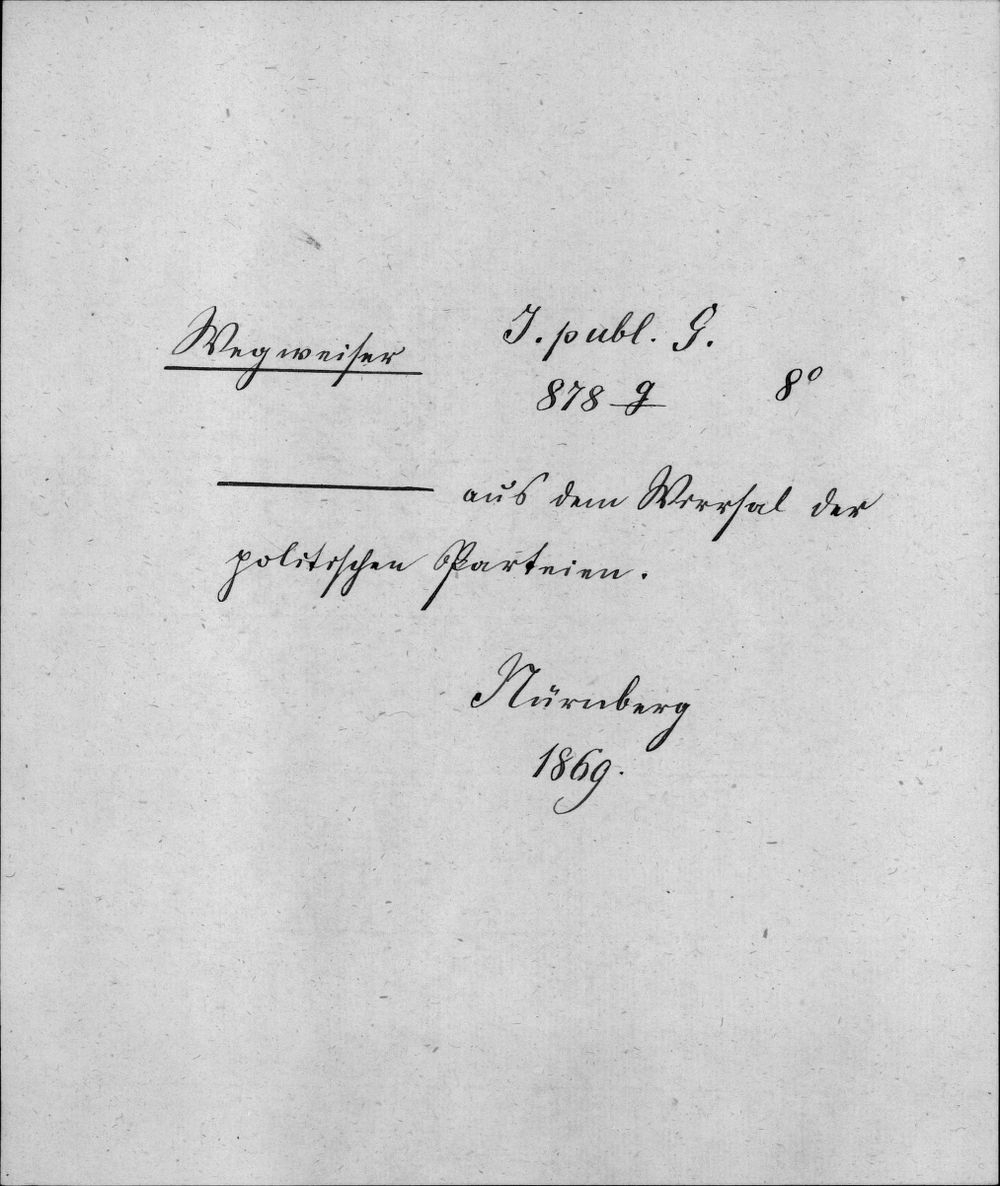 Wegweiser
J. publ. G.
878 g 8°
——— aus dem Wirrsal der
politischen Parteien.
Nürnberg
1869.